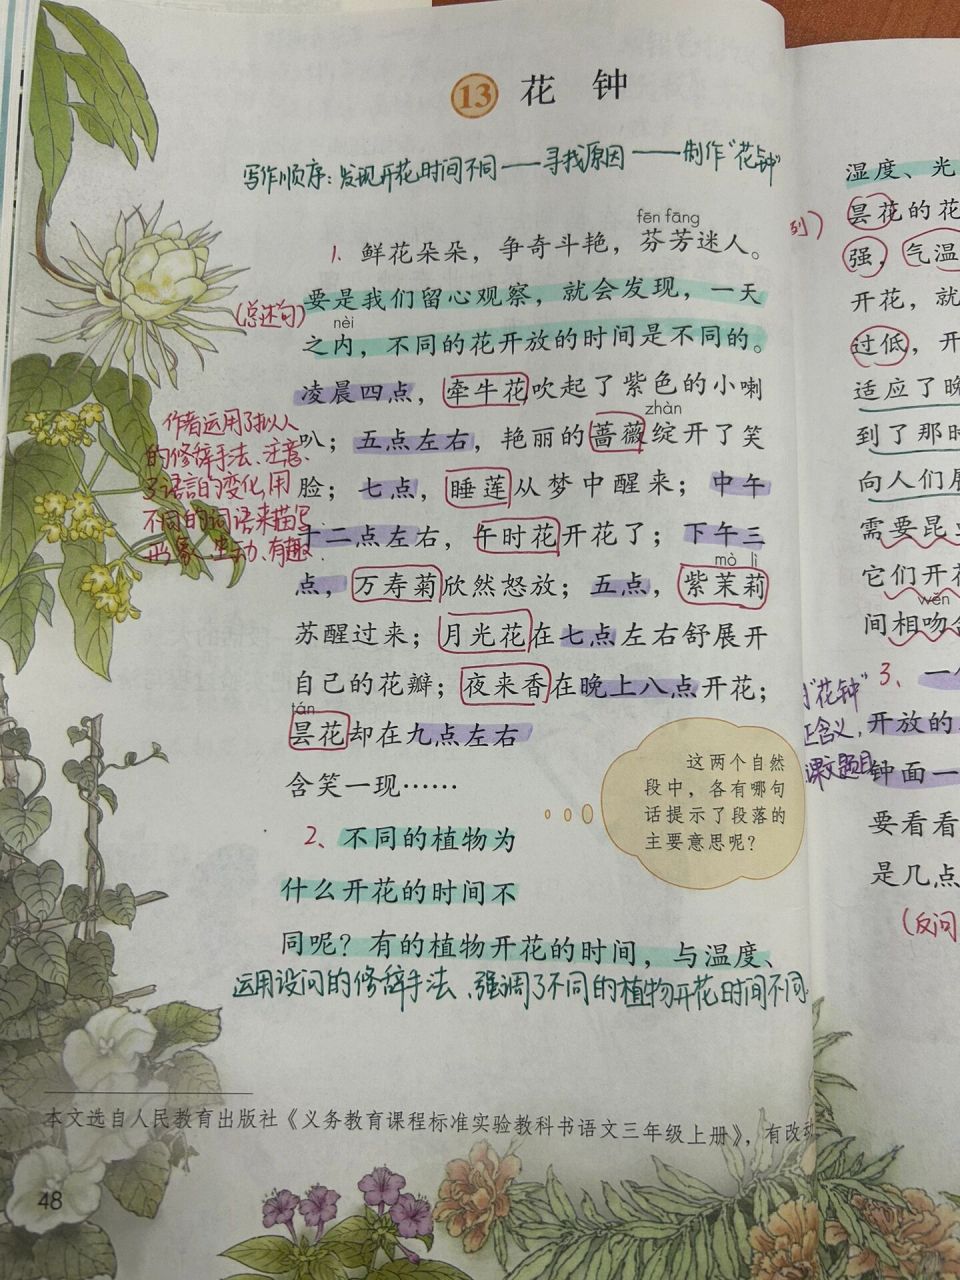 13 花钟
写作顺序：发现开花时间不同——寻找原因——制作“花钟”
fēn fāng
1. 鲜花朵�，争奇斗艳，芬芳迷人。
要是我们留心观察，就会发现，一天
(总述句)
nèi
之内，不同的花开放的时间是不同的。
凌晨四点，牵牛花吹起了紫色的小喇
zhàn
叭；五点左右，艳丽的蔷薇绽开了笑
脸；七点，睡莲从梦中醒来；中午
十二点左右，午时花开花了；下午三
mò lì
点，万寿菊欣然怒放；五点，紫茉莉
苏醒过来；月光花在七点左右舒展开
自己的花瓣；夜来香在晚上八点开花；
tán
昙花却在九点左右
含笑一现……
作者运用了拟人
的修辞手法、注意
了语言的变化，用
不同的词语来描写
形象、生动、有趣
这两个自然
段中，各有哪句
话提示了段落的
主要意思呢？
2、不同的植物为
什么开花的时间不
同呢？有的植物开花的时间，与温度、
运用设问的修辞手法、强调了不同的植物开花时间不同
本文选自人民教育出版社《义务教育课程标准实验教科书语文三年级上册》，有改
48
湿度、光
昙花的花
强，气温
开花，就
过低，开
适应了晚
到了那时
向人们展
需要昆
它们开花
wěn
间相吻
3、一
“花钟”
含义，
课文题目
开放的
钟面一
要看看
是几点
(反问